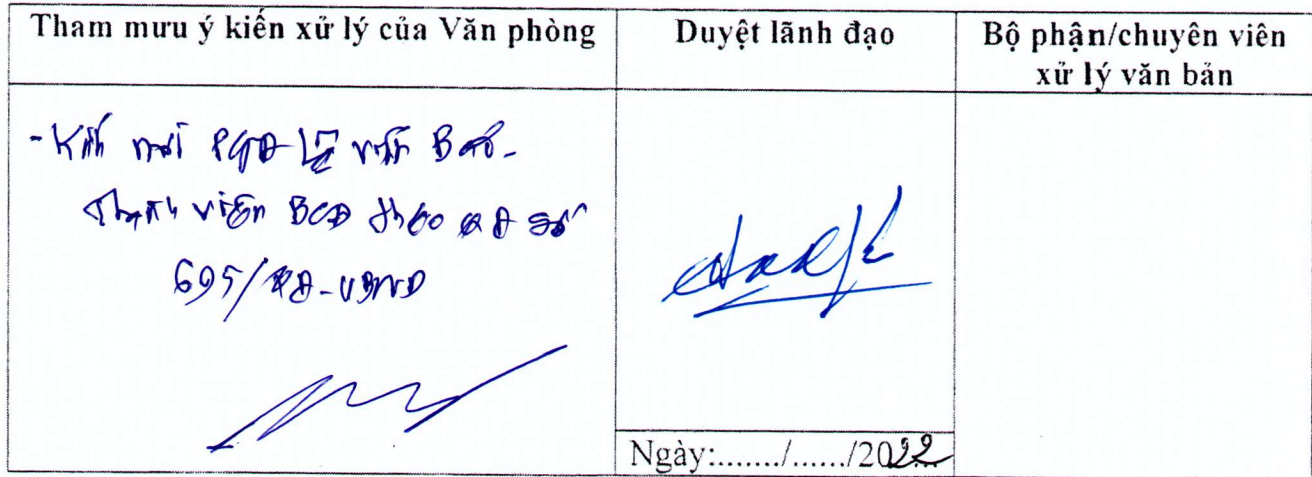 Tham mưu ý kiến xử lý của Văn phòng
Duyệt lãnh đạo
Bộ phận/chuyên viên
xử lý văn bản
- Kính mời PGĐ Lê Văn
Thành viên BCĐ theo QĐ số
695/QĐ-UBND
Ngày:......../....../2022...